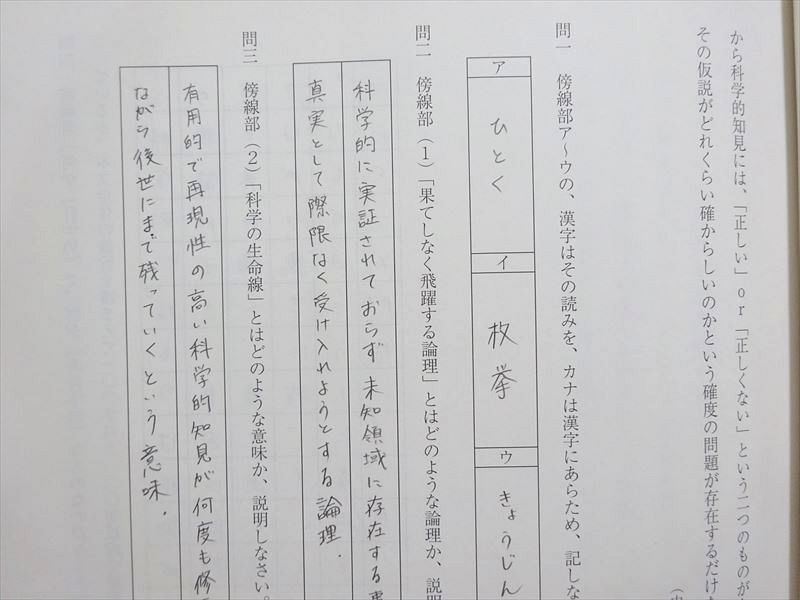 から科学的知見には、「正しい」or「正しくない」という二つのものが
その仮説がどれくらい確からしいのかという確度の問題が存在するだけ
問一 傍線部ア～ウの、漢字はその読みを、カナは漢字にあらため、記しな
ア
ひとく
イ
枚挙
ウ
きょうじん
問二 傍線部（1）「果てしなく飛躍する論理」とはどのような論理か、説明
科学的に実証されておらず未知領域に存在する事
真実として際限なく受け入れようとする論理.
問三 傍線部（2）「科学の生命線」とはどのような意味か、説明しなさい。
有用的で再現性の高い科学的知見が何度も修
ながら後世にまで残っていくという意味.